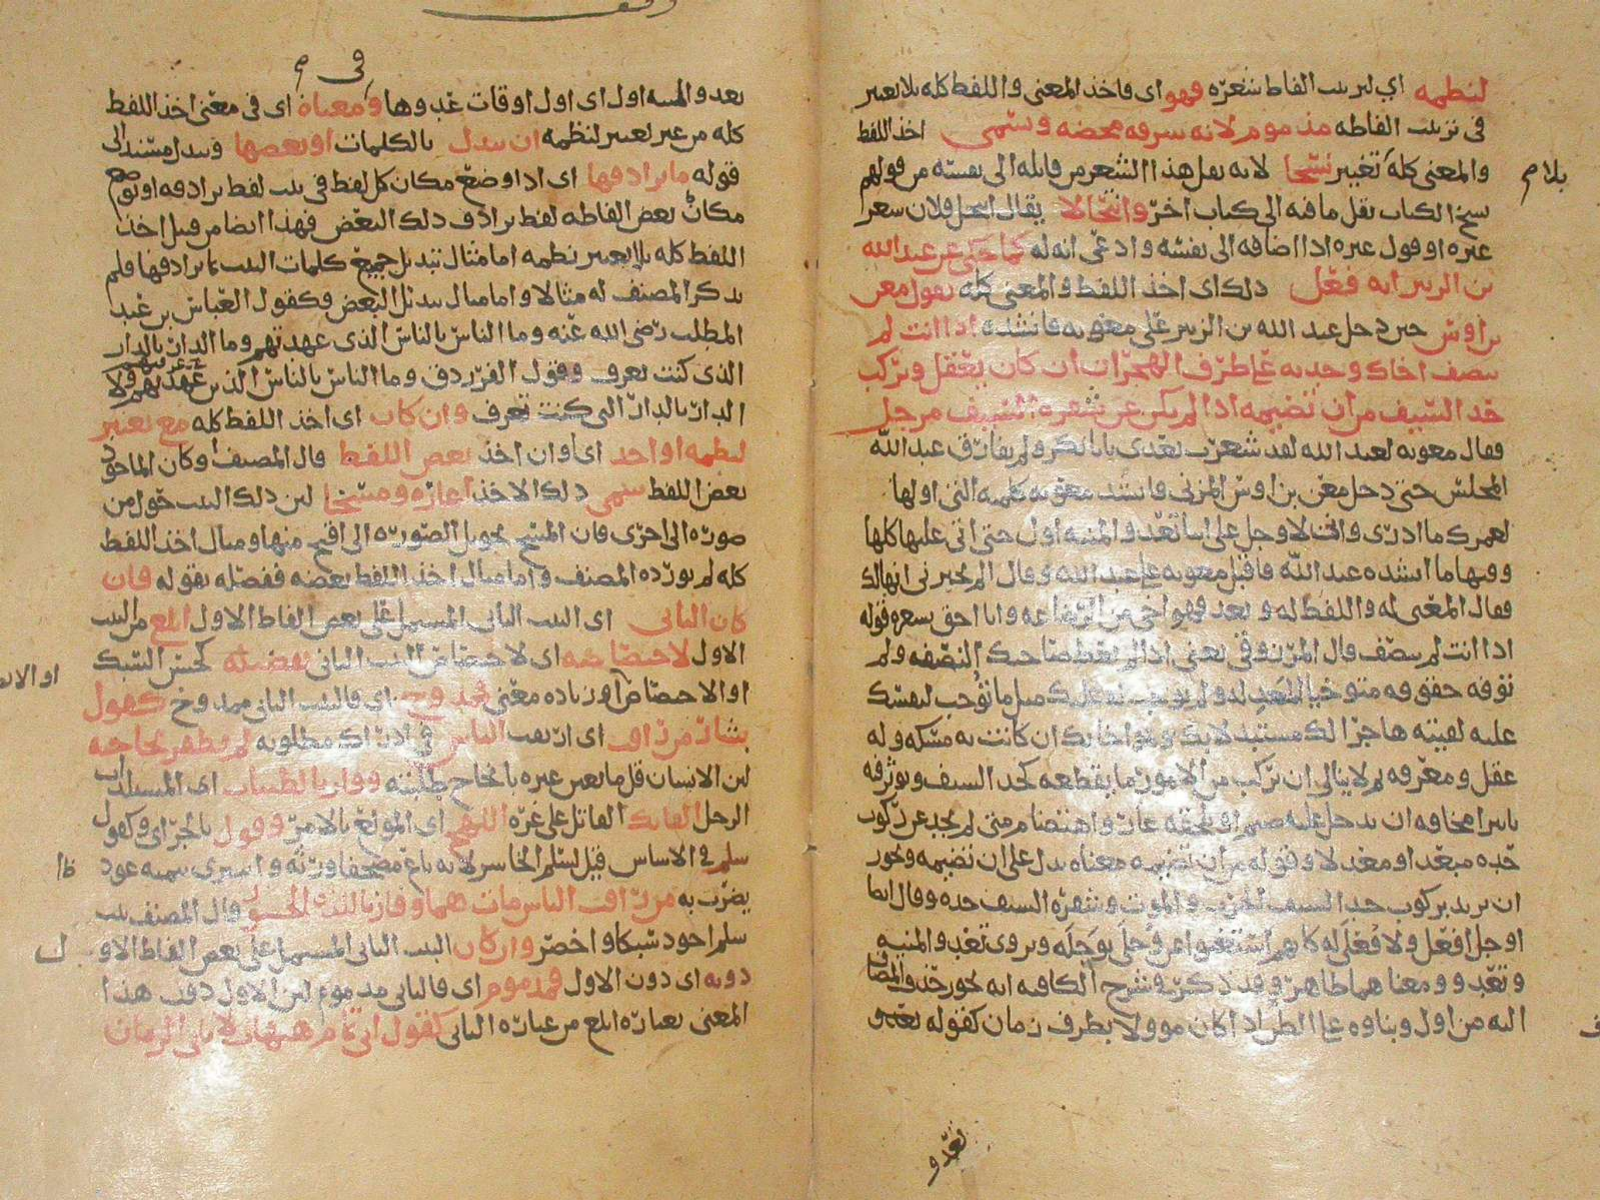 لنظمه اي لترتيب الفاظ شعره فهو اى فاخذ المعنى واللفظ كله بلا تغيير
فى ترتيب الفاظه مذموم لانه سرقه محضه ويسمى اخذ اللفظ
والمعنى كله تغيير نسخا لانه نقل هذا الشعر من قايله الى نفسه من قولهم
بلام
نسخ الكتاب نقل ما فيه الى كتاب اخر وانتحالا يقال انتحل فلان شعر
غيره او قول غيره اذا اضافه الى نفسه وادعى انه له كما حكى عن عبد الله
بن الزبير انه فعل ذلك اى اخذ اللفظ والمعنى كله بقول معن
بن اوس حين دخل عبد الله بن الزبير على معويه فانشده اذا انت لم
تنصف اخاك وجدته على طرف الهجران ان كان يعقل ويركب
حد السيف من ان تضيمه اذا لم يكن عن شفرة السيف مزحل
فقال معويه لعبد الله لقد شعرت بعدى يا با بكر ولم يفارق عبد الله
المجلس حتى دخل معن بن اوس المزنى وانشد معويه كلمته التى اولها
لعمرك ما ادرى وانى لاوجل على اينا تغدو المنيه اول حتى اتى عليها كلها
وفيها ما انشده عبد الله فاقبل معويه على عبد الله وقال الم تخبرنى انها لك
فقال المعنى له واللفظ له وبعد فهو اخى من الرضاعه وانا احق بشعره قوله
اذا انت لم تنصف قال المرزوقى يعنى اذا لم تعط صاحبك النصفه ولم
توفه حقوقه متوخيا للعدل له ولم توجب له عليك مثل ما توجب لنفسك
عليه لفيته هاجرا لك مستبدلا بك وباخايك ان كانت به مسكه وله
عقل ومعرفه ثم لا يبالى ان يركب من الامور ما يقطعه كحد السيف ويوثر فيه
تاثيرا مخافه ان يدخل عليه ضيم او يلحقه عار واهتضام متى لم يجد عن ركوب
حده مبعدا ومعدلا وقوله من ان تضيمه معناه بدلا على ان تضيمه ويجوز
ان يريد بركوب حد السيف الحرب والموت وشفرة السيف حده وقال ايضا
اوجل افعل ولا فعلى له كانهم استغنوا عن وجلى بوجله ويروى تغدو المنيه
وتعدو ومعناهما ظاهر وقد ذكر فى شرح الكافيه انه يجوز حذف المضاف
اليه من اول وبناوه على الضم اذا كان موولا بظرف زمان كقوله تغدو
تغدو
فى م
بعد والمنيه اول اى اول اوقات غدوها ومعناه اى فى معنى اخذ اللفظ
كله من غير تغيير لنظمه ان يبدل بالكلمات او بعضها ويبدل مسند الى
قوله ما يرادفها اى اذا وضع مكان كل لفظ فى بيت لفظ يرادفه او توضع
مكان بعض الفاظه لفظ يرادف ذلك البعض فهذا ايضا من قبيل اخذ
اللفظ كله بلا تغيير نظمه اما مثال تبديل جميع كلمات البيت بما يرادفها فلم
يذكر المصنف له مثالا واما مثال تبديل البعض فكقول العباس بن عبد
المطلب رضى الله عنه وما الناس بالناس الذى عهدتهم وما الدار بالدار
الذى كنت تعرف وقول الفرزدق وما الناس بالناس الذين عهدتهم ولا
الدار بالدار التى كنت تعرف وان كان اى اخذ اللفظ كله مع تغيير
لنظمه او احد اى او ان اخذ بعض اللفظ قال المصنف او كان الماخوذ
بعض اللفظ سمى ذلك الاخذ اغاره ومسخا لان ذلك البيت حول من
صوره الى اخرى فان المسخ تحويل الصوره الى اقبح منها ومثال اخذ اللفظ
كله لم يورده المصنف واما مثال اخذ اللفظ بعضه ففصله بقوله فان
كان الثانى اى البيت الثانى المشتمل على بعض الفاظ الاول ابلغ من البيت
الاول لاختصاصه اى لاختصاص البيت الثانى بفضيله كحسن السبك
او الاختصار او زياده معنى فممدوح اى فالبيت الثانى ممدوح كقول
بشار من راقب اى ارتقب الناس فى ادراك مطلوبه لم يظفر بحاجته
لان الانسان قل ما يعين غيره بانجاح طلبته وفاز بالطيبات اى المستلذات
الرجل الفاتك القاتل على غره اللهج اى المولع بالامر وقول بالجر اى وكقول
سلم فى الاساس قيل لسلم الخاسر لانه باع مصحفا ورثه واشترى بثمنه عود
يضرب به من راقب الناس مات هما وفاز باللذه الجسور قال المصنف بيت
سلم اجود سبكا واخصر وان كان البيت الثانى المشتمل على بعض الفاظ الاو
ل
دونه اى دون الاول فمذموم اى فالثانى مذموم لان الاول دون هذا
المعنى بعباره ابلغ من عباره الثانى كقول ابى تمام هيهات لا ياتى الزمان